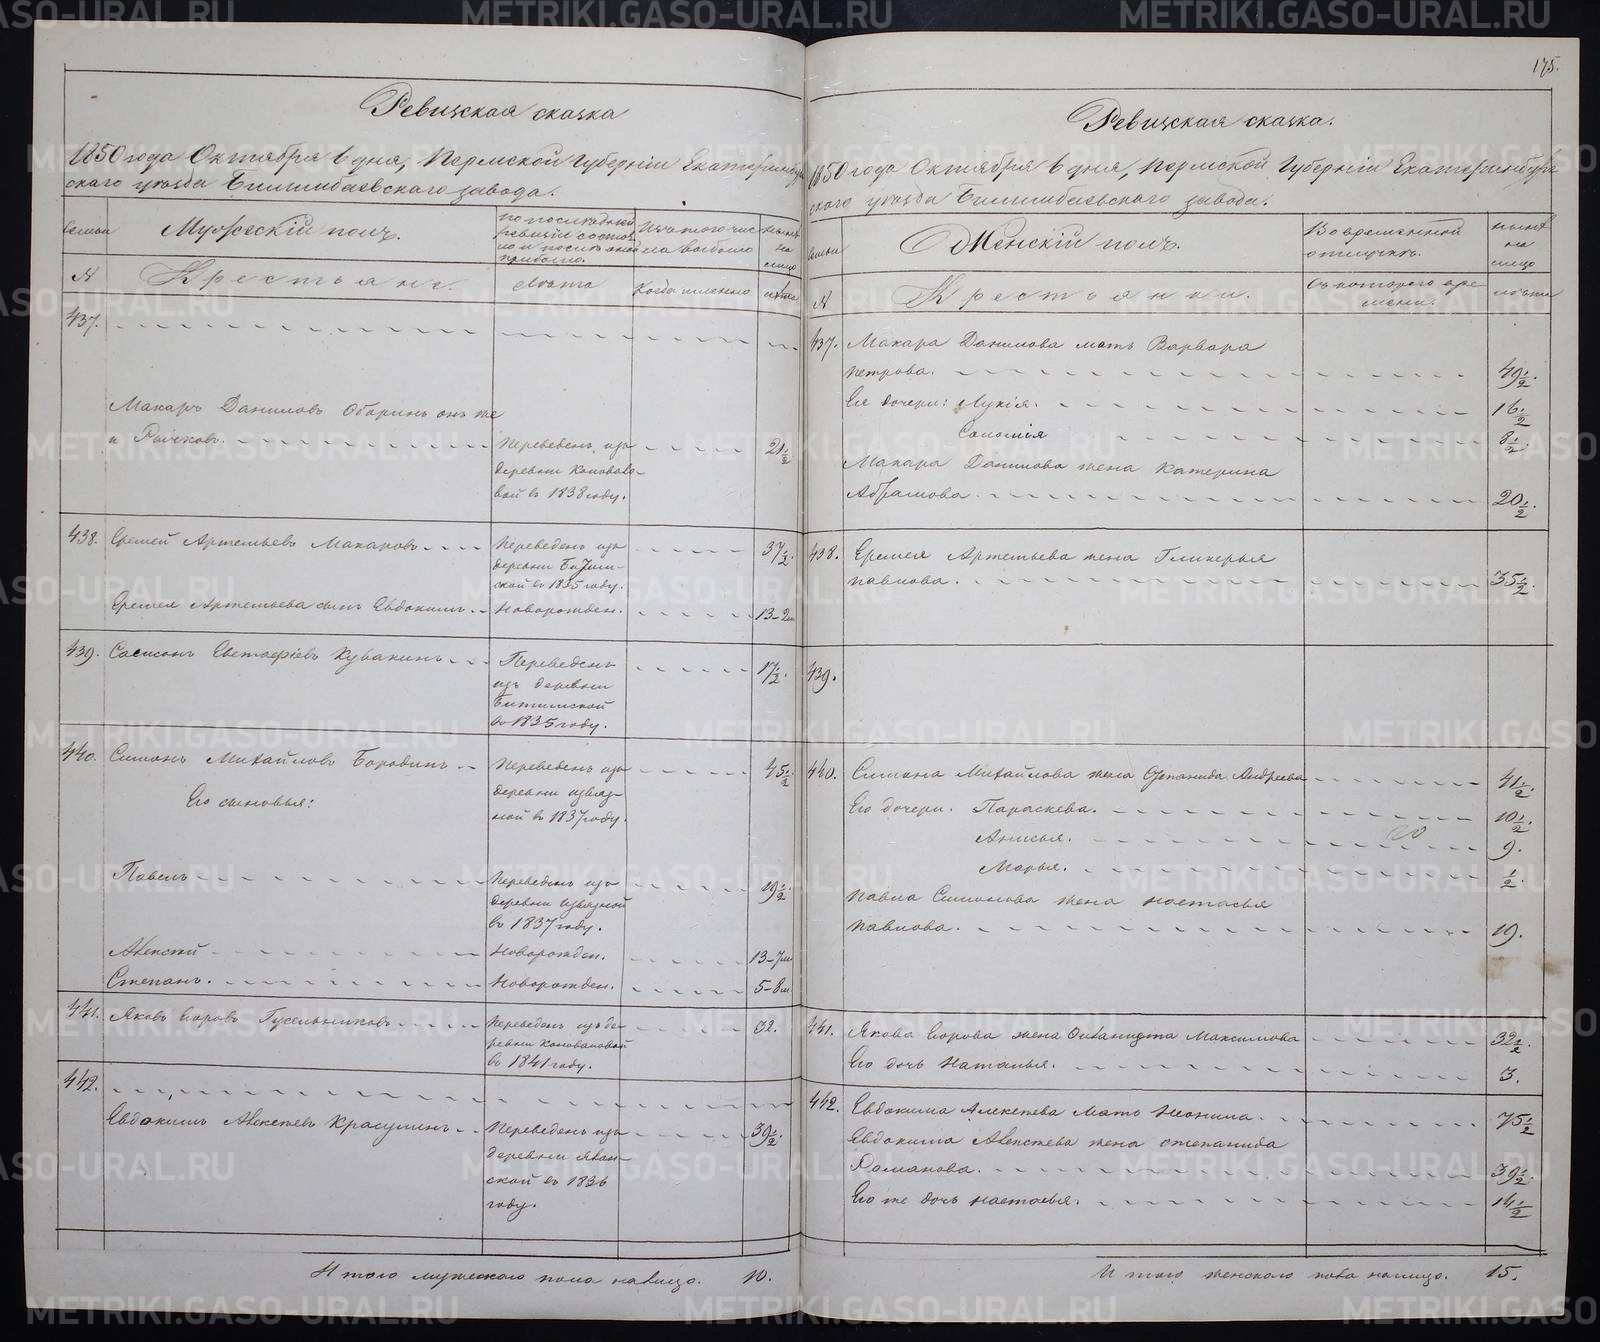 Ревижская сказка
1850 года Октября 6 дня, Пермской Губерніи Екатеринбург
скаго уѣзда Билимбаевскаго завода.
семьи
Мужескій полъ.
по последней
ревизіи состоя
ло и послѣ оной
прибыло.
Изъ того чис
ла выбыло
нынѣ
на
лицо
№
Крестьяне.
Лѣта
Когда именно
лѣта
437.
Макаръ Даниловъ Оборинъ онъ же
и Рычковъ.
Переведенъ изъ
деревни Коновало-
вой въ 1838 году.
21 1/2
438.
Еремей Артемьевъ Макаровъ
Переведенъ изъ
деревни
ской въ 1835 году.
37 1/2.
Еремея Артемьева сынъ Евдокимъ
Новорожден.
13-2м
439.
Самсонъ Евстафіевъ Кувакинъ
Переведенъ
изъ деревни
Битимской
въ 1835 году.
17 1/2.
440.
Симонъ Михайловъ Бородинъ
Переведенъ изъ
деревни извяз-
ной въ 1837 году.
45 1/2
Его сыновья:
Павелъ
Переведенъ изъ
деревни извязной
въ 1837 году.
19 1/2
Алексѣй
Новорожден.
13-7м
Степанъ.
Новорожден.
5-8м
441.
Яковъ Егоровъ Гусельниковъ
Переведенъ изъ де-
ревни Коноваловой
въ 1841 году.
32.
442.
Евдокимъ Алексѣевъ Красулинъ
Переведенъ изъ
деревни
ской въ 1836
году.
39 1/2.
Итого мужескаго пола налицо. 10.
175.
Ревижская сказка.
1850 года Октября 6 дня, Пермской Губерніи Екатеринбург
скаго уѣзда Билимбаевскаго завода.
семьи
Женскій полъ.
Во временной
отлучкѣ.
нынѣ
на
лицо
№
Крестьянки.
Съ котораго вре-
мени.
лѣта
437.
Макара Данилова мать Варвара
Петрова.
49 1/2.
Ея дочери: Лукія.
16 1/2
Соломія
8 1/2
Макара Данилова жена Катерина
Абрамова.
20 1/2.
438.
Еремея Артемьева жена Гликерья
Павлова.
35 1/2.
439.
440.
Симона Михайлова жена Степанида Андреева
41 1/2.
Его дочери. Параскева.
10 1/2.
Анисья.
9.
Марья.
1/2.
Павла Симонова жена Настасья
Павлова.
19.
441.
Якова Егорова жена Максимова
32 1/2.
Его дочь Наталья.
3.
442.
Евдокима Алексѣева Мать Неонила.
75 1/2
Евдокима Алексѣева жена Степанида
Романова.
39 1/2.
Его же дочь Настасья.
14 1/2
Итого женскаго пола налицо. 15.
METRIKI.GASO-URAL.RU